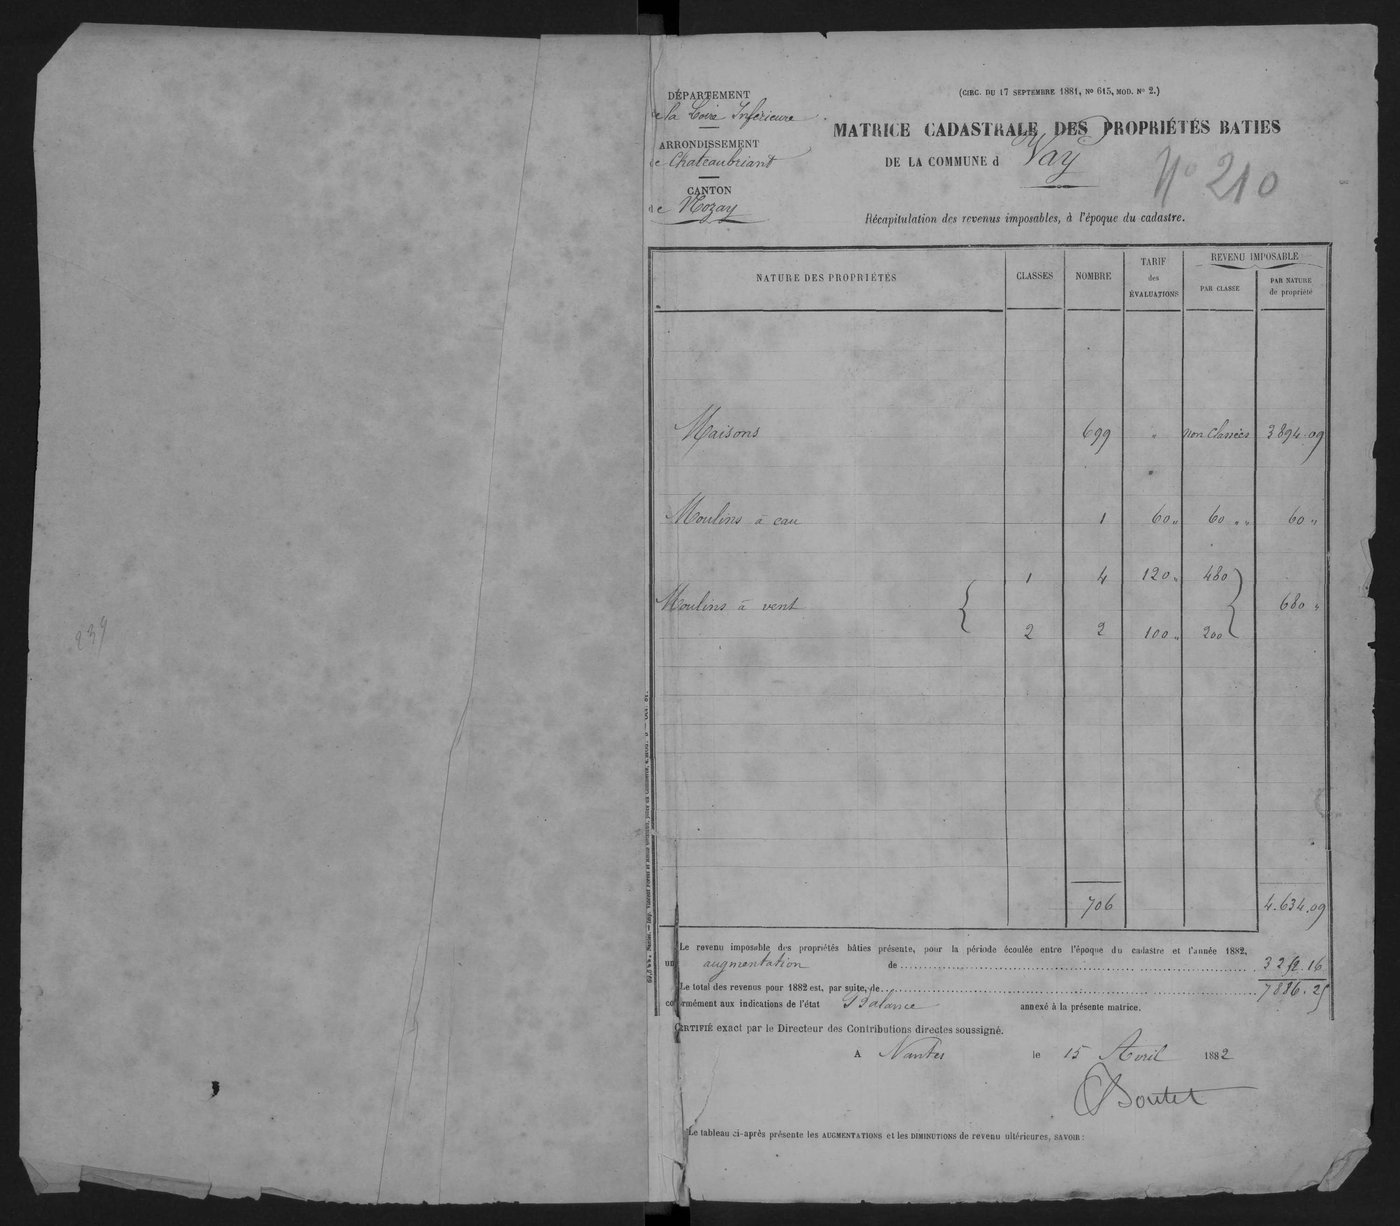 239
DÉPARTEMENT
de la Loire Inférieure
ARRONDISSEMENT
de Chateaubriant
CANTON
de Nozay
(CIRC. DU 17 SEPTEMBRE 1881, No 615, MOD. No 2.)
MATRICE CADASTRALE DES PROPRIÉTÉS BATIES
DE LA COMMUNE d Vay
No 210
Récapitulation des revenus imposables, à l'époque du cadastre.
NATURE DES PROPRIÉTÉS CLASSES NOMBRE TARIF des ÉVALUATIONS REVENU IMPOSABLE
PAR CLASSE PAR NATURE de propriété
Maisons 699 " non classées 3894.09
Moulins à eau 1 60 " 60 " " 60 "
1 4 120 " 480
Moulins à vent 680 "
2 2 100 " 200
706 4.634.09
Le revenu imposable des propriétés bâties présente, pour la période écoulée entre l'époque du cadastre et l'année 1882,
un augmentation de 3252.16
Le total des revenus pour 1882 est, par suite, de 7886.25
conformément aux indications de l'état Balance annexé à la présente matrice.
CERTIFIÉ exact par le Directeur des Contributions directes soussigné.
A Nantes le 15 Avril 1882
Boutet
Le tableau ci-après présente les AUGMENTATIONS et les DIMINUTIONS de revenu ultérieures, SAVOIR :